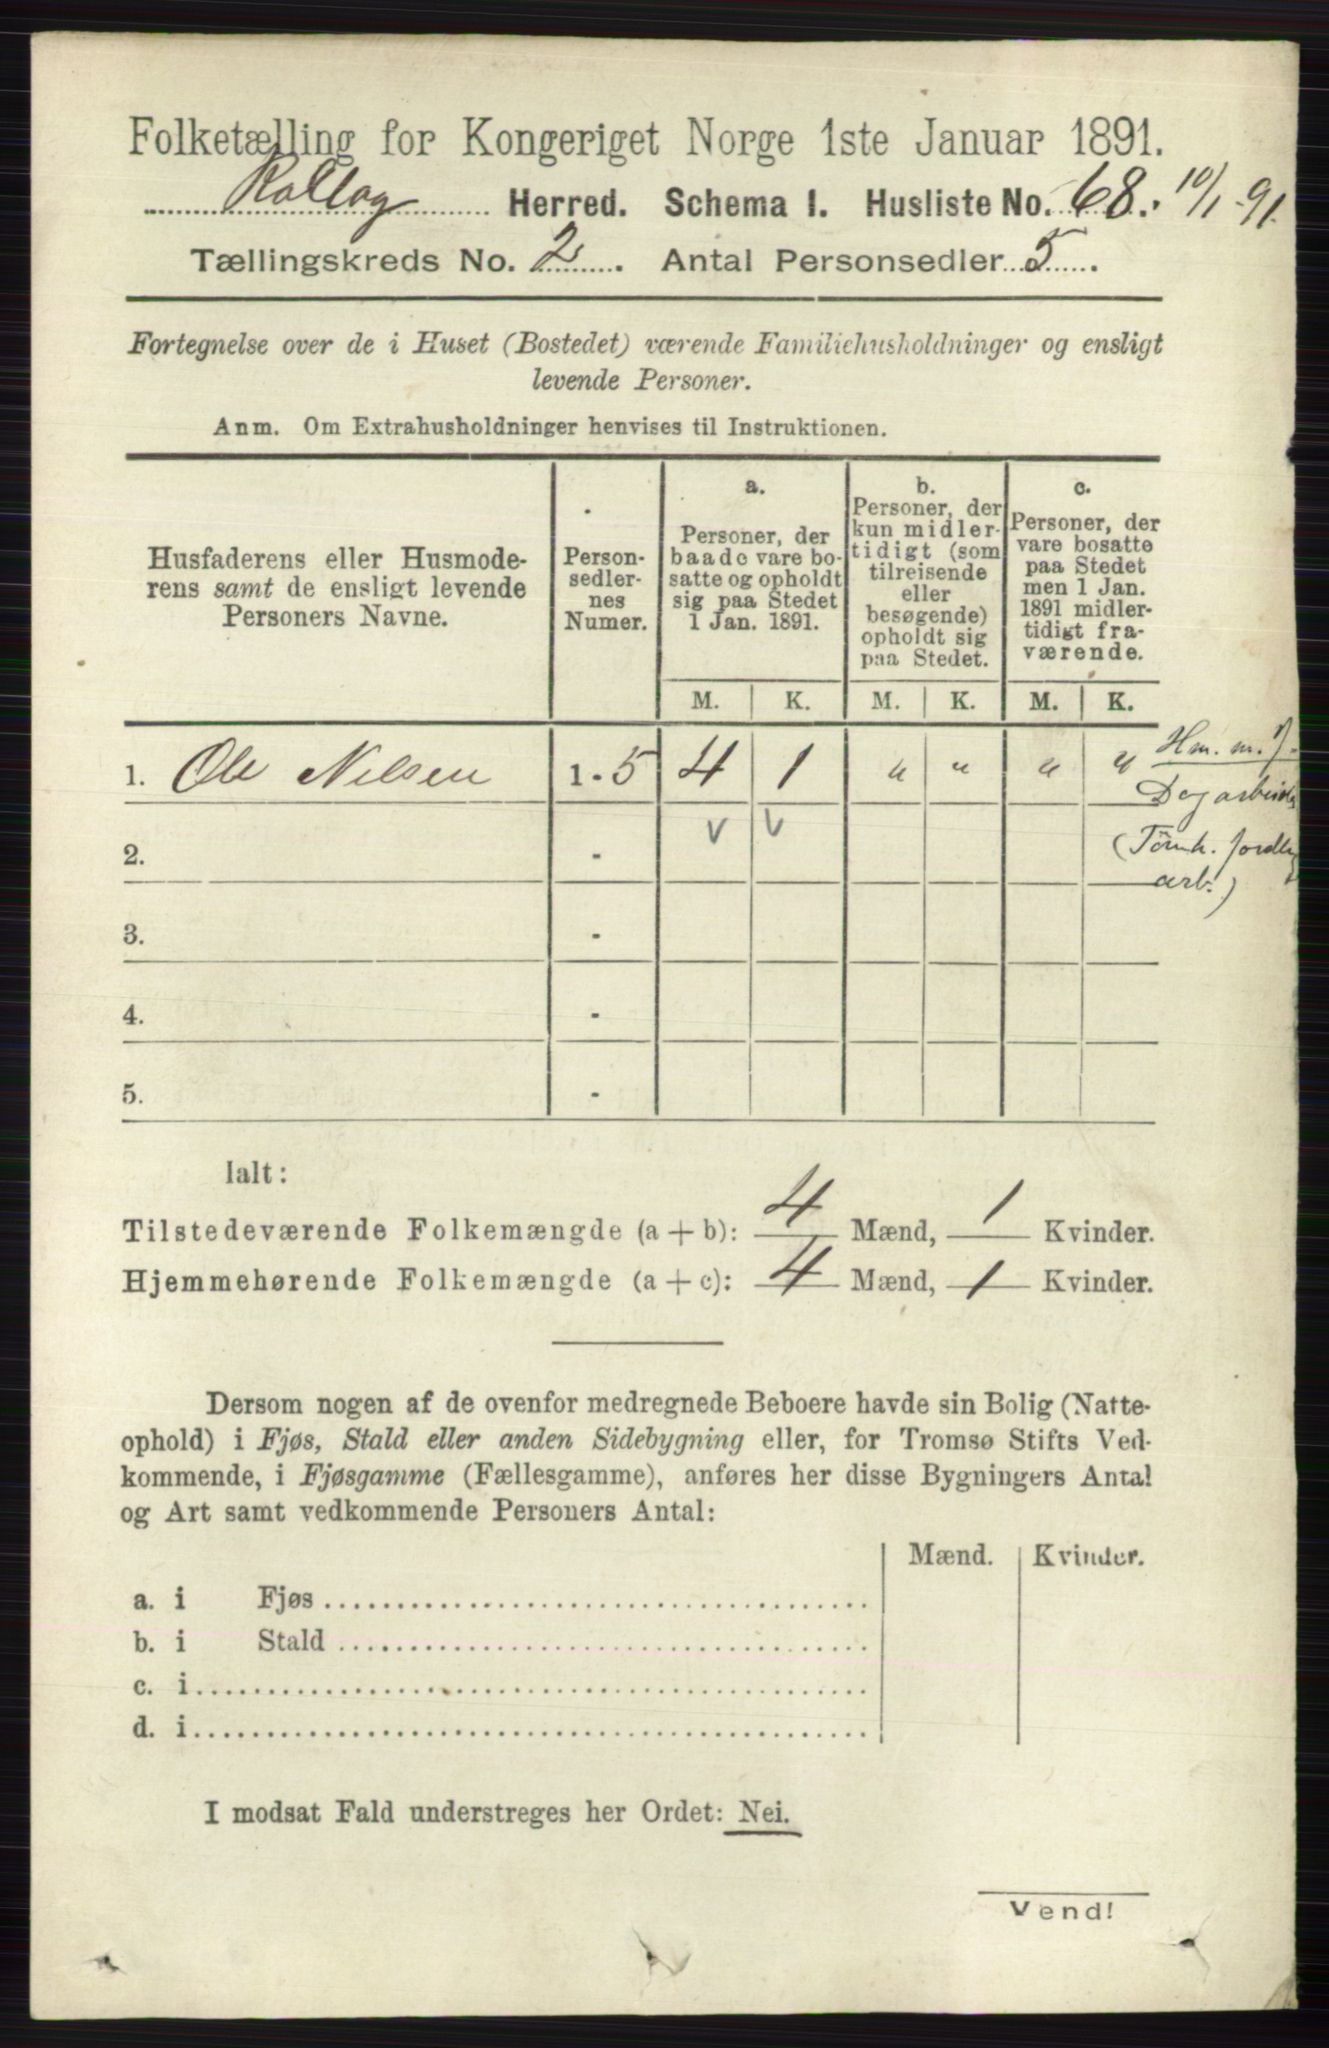 Folketælling for Kongeriget Norge 1ste Januar 1891.
Rollag Herred. Schema I. Husliste No. 68. 10/1 -91.
Tællingskreds No. 2. Antal Personsedler 5.
Fortegnelse over de i Huset (Bostedet) værende Familiehusholdninger og ensligt
levende Personer.
Anm. Om Extrahusholdninger henvises til Instruktionen.
Husfaderens eller Husmode-
rens samt de ensligt levende
Personers Navne.
Person-
sedler-
nes
Numer.
a.
Personer, der
baade vare bo-
satte og opholdt
sig paa Stedet
1 Jan. 1891.
b.
Personer, der
kun midler-
tidigt (som
tilreisende
eller
besøgende)
opholdt sig
paa Stedet.
c.
Personer, der
vare bosatte
paa Stedet
men 1 Jan.
1891 midler-
tidigt fra-
værende.
M. K. M. K. M. K.
1. Ole Nilsen 1 - 5 4 1 " " " "
Hm. m. J
Dagarbeider
(Tömh. jordbr
arb.)
v v
2. -
3. -
4. -
5. -
Ialt:
Tilstedeværende Folkemængde (a + b): 4 Mænd, 1 Kvinder.
Hjemmehørende Folkemængde (a + c): 4 Mænd, 1 Kvinder.
Dersom nogen af de ovenfor medregnede Beboere havde sin Bolig (Natte-
ophold) i Fjøs, Stald eller anden Sidebygning eller, for Tromsø Stifts Ved-
kommende, i Fjøsgamme (Fællesgamme), anføres her disse Bygningers Antal
og Art samt vedkommende Personers Antal:
Mænd. Kvinder.
a. i Fjøs
b. i Stald
c. i
d. i
I modsat Fald understreges her Ordet: Nei.
Vend!